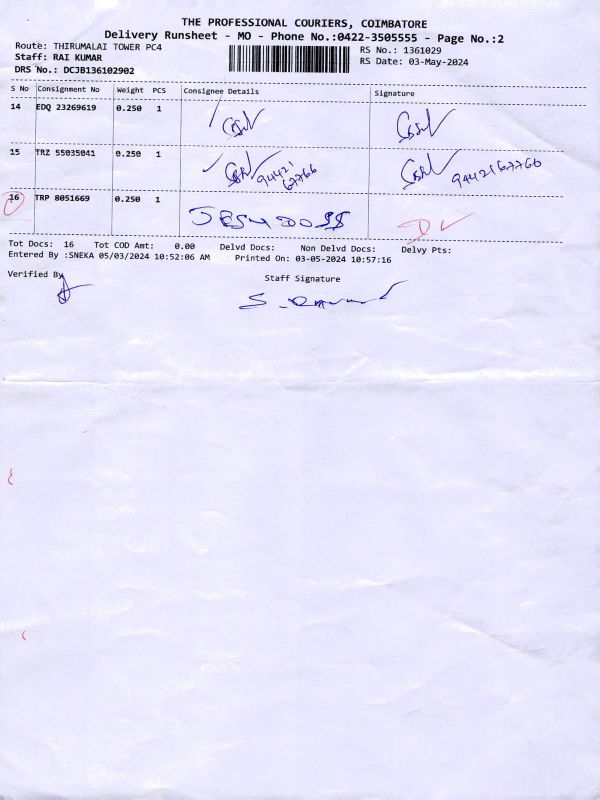 THE PROFESSIONAL COURIERS, COIMBATORE
Delivery Runsheet - MO - Phone No.:0422-3505555 - Page No.:2
Route: THIRUMALAI TOWER PC4
Staff: RAI KUMAR
DRS No.: DCJB136102902
RS No.: 1361029
RS Date: 03-May-2024
S No Consignment No Weight PCS Consignee Details Signature
14 EDQ 23269619 0.250 1
15 TRZ 55035041 0.250 1 94421 67766 9442167766
16 TRP 8051669 0.250 1 JESUDOSS
Tot Docs: 16 Tot COD Amt: 0.00 Delvd Docs: Non Delvd Docs: Delvy Pts:
Entered By :SNEKA 05/03/2024 10:52:06 AM Printed On: 03-05-2024 10:57:16
Verified By
Staff Signature